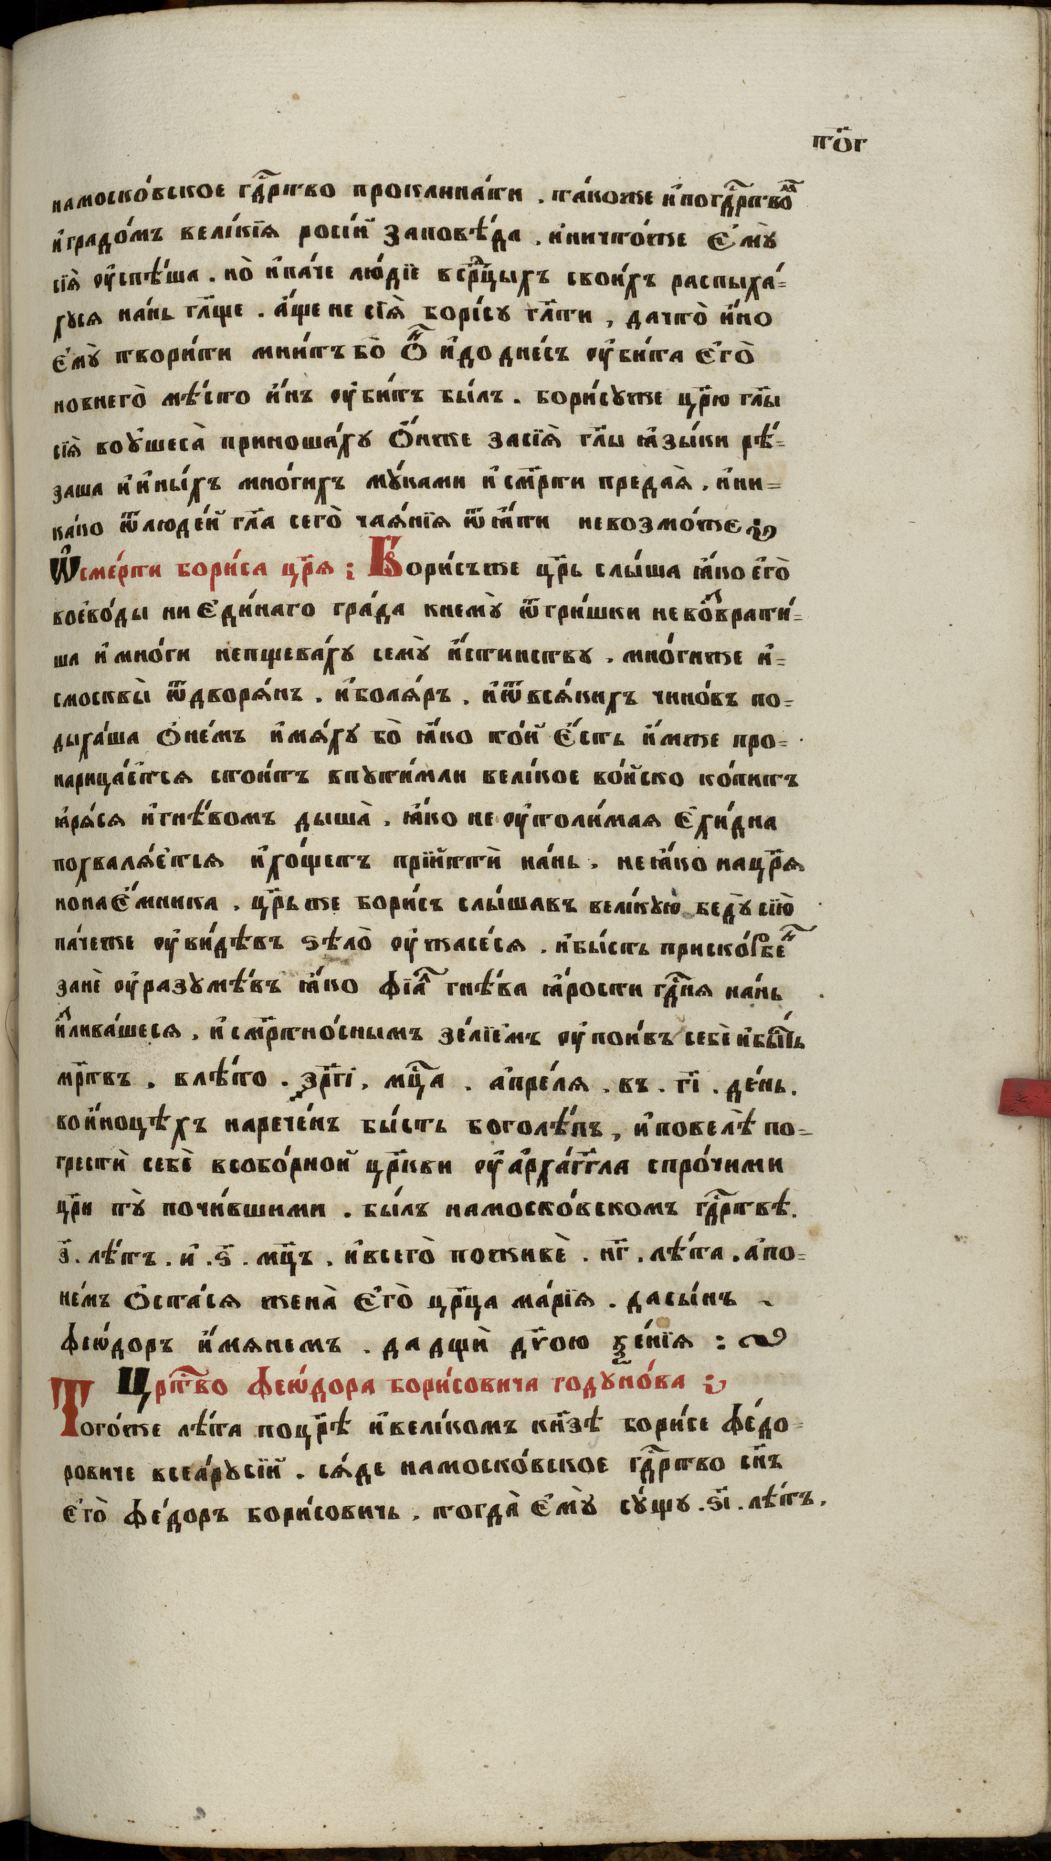 т҃ог
намоско́вское гдⷭ҇ртво проклина́ти . та́коже и҆погдⷭ҇ртвоⷨ
и҆градо́мъ вели́кїѧ росі́й заповѣ́да . и҆ничто́же є҆мꙋ̀
сїѧ̀ ᲂу҆спѣ́ша . но̀ и҆па́че лю́дїе всрⷣцыхъ свои́хъ распыха́-
хусѧ на́нь гл҃ще . а҆́ще не сїѧ̀ бори́су гл҃ти , дачто̀ и҆́но
є҆мꙋ̀ твори́ти мни́тъ бо̀ ѻ҆ⷩ҇ и҆до дне́сь ᲂу҆би́та є҆го̀
новнего̀ мѣ́сто и҆́нъ ᲂу҆би́тъ бы́лъ . бори́суже цр҃ю гл҃ы
сїѧ̀ воᲂу҆шеса̀ приноша́ху ѻ҆́нже засїѧ̀ гл҃ы ꙗ҆зы́ки рѣ́-
заша и҆и҆ны́хъ мно́гихъ мꙋ́ками и҆см҃рти преда́ѧ . и҆ни-
ка́ко ѿлюде́й гл҃а сего̀ чаѧ́нїѧ ѿꙗ҆́ти невозмо́же
Ѡ҆сме́рти бори́са цр҃ѧ : Бори́съже цр҃ь слы́ша ꙗ҆́ко є҆го̀
воево́ды ни є҆ди́наго гра́да кнемꙋ̀ ѿгри́шки невоⷥврати́-
ша и҆мно́ги непщева́ху семꙋ̀ и҆́стинству . мно́гиже и҆-
смосквы̀ ѿдворѧ́нъ . и҆болѧ́ръ . и҆ѿвсѧ́кихъ чино́въ по-
дыха́ша ѻ҆не́мъ и҆мѧ́ху бо̀ ꙗ҆́ко то́й є҆́сть и҆́мже про-
нарица́етсѧ стои́тъ впути́мли вели́кое во́йско ко́питъ
ꙗ҆рѧ́сѧ и҆гнѣ́вомъ дыша̀ . ꙗ҆́ко не ᲂу҆толи́маѧ є҆хи́дна
похвалѧ́етсѧ и҆хо́щетъ прїйти́ на́нь . не ꙗ҆́ко нацр҃ѧ
нонає҆́мника . цр҃ьже бори́съ слы́шавъ вели́кую бедꙋ̀ сїю̀
па́чеже ᲂу҆ви́дѣвъ ѕѣло̀ ᲂу҆жасе́сѧ . и҆бы́сть приско́рбеⷩ҇
занѐ ᲂу҆разумѣ́въ ꙗ҆́ко фїаⷧ҇ гнѣ́ва ꙗ҆́рости гдⷭ҇нѧ на́нь
и҆ⷥлива́шесѧ , и҆см҃ртно́снымъ зе́лїемъ ᲂу҆пои́въ себѐ и҆бы́ть
мр҃твъ . влѣ́то . ҂зр҃гі . мцⷭ҇а . а҆пре́лѧ . въ . г҃і . де́нь .
вои҆́ноцѣхъ нарече́нъ бы́сть боголѣ́пъ , и҆повелѣ̀ по-
грестѝ себѐ всобо́рной цр҃кви ᲂу҆а҆рха́гг҃ла спро́чими
цр҃и тꙋ̀ почи́вшими . бы́лъ намоско́вскомъ гдⷭ҇ртвѣ .
з҃ . лѣ́тъ . и҆ . ѕ҃ . мцⷭ҇ъ . и҆всего̀ поживѐ . н҃г . лѣ́та . а҆по-
не́мъ ѻ҆ста́сѧ жена̀ є҆го̀ цр҃ца ма́рїѧ . дасы́нъ
фео́доръ и҆́мѧнемъ . да дщѝ дв҃ою ѯе́нїѧ :
Црⷭ҇тво фео́дора бори́совича годуно́ва
Того́же лѣ́та поцр҃ѣ и҆вели́комъ кн҃зѣ бори́се фе́до-
ровиче всеа́русі́й . сѧ́де намоско́вское гдⷭ҇ртво сн҃ъ
є҆го̀ фе́доръ бори́совичь . тогда̀ є҆мꙋ̀ сꙋ́щу . ѕ҃і . лѣ́тъ .